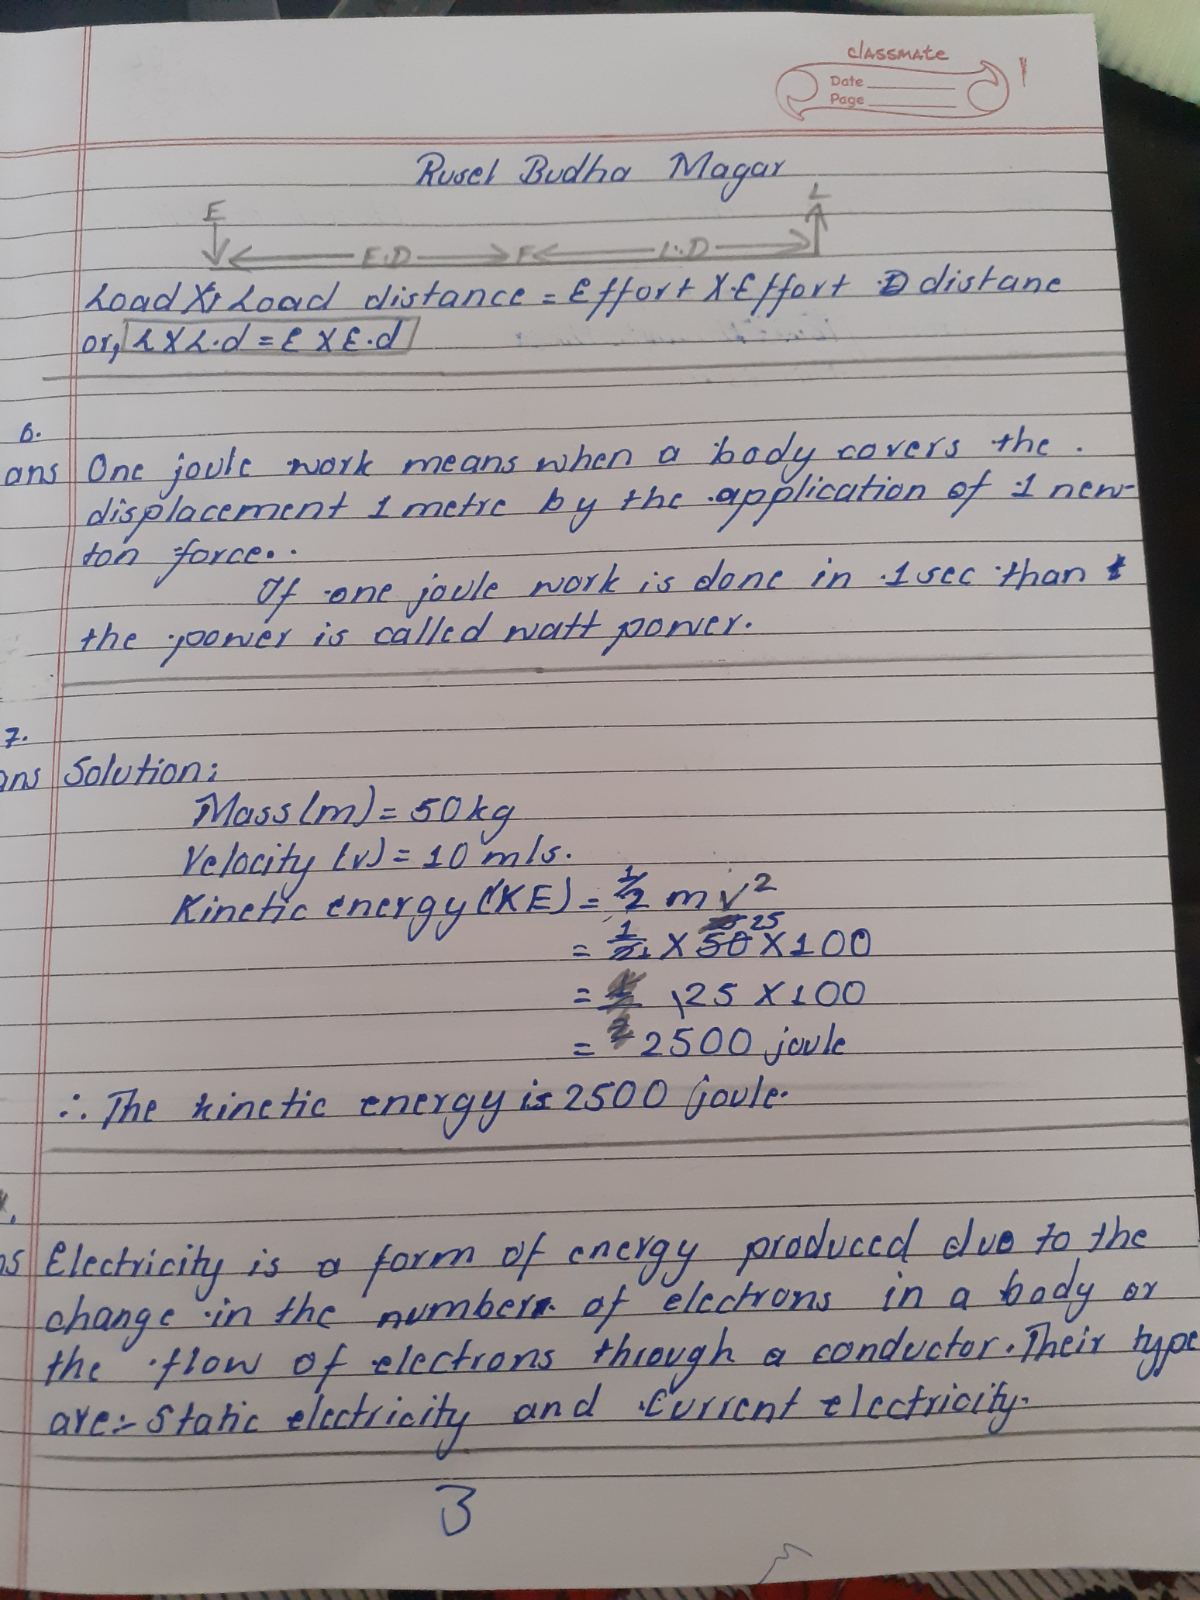 classmate
Date
Page
Rusel Budha Magar
E L
E.D F L.D
Load X Load distance = Effort X Effort D distane
or, L X L.d = E X E.d
6.
ans One joule work means when a body covers the
displacement 1 metre by the application of 1 new-
ton force..
If one joule work is done in 1 sec than t
the power is called watt power.
7.
ans Solution:
Mass (m) = 50 kg
Velocity (v) = 10 m/s.
Kinetic energy (KE) = 1/2 m v²
25
= 1/2 1 X 50 X 100
= 25 X 100
= 2500 joule
∴ The kinetic energy is 2500 joule.
ns Electricity is a form of energy produced due to the
change in the number of electrons in a body or
the flow of electrons through a conductor. Their type
are:- Static electricity and Current electricity.
3